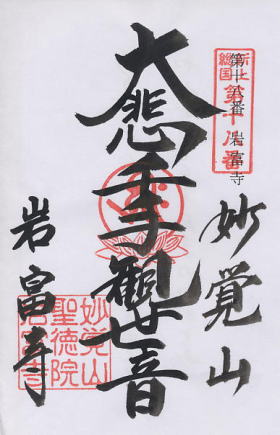 新上
総国
第十八番
第十八番 岩富寺
妙覚山
大悲千手觀世音
岩富寺
妙覚山
聖徳院
岩富寺